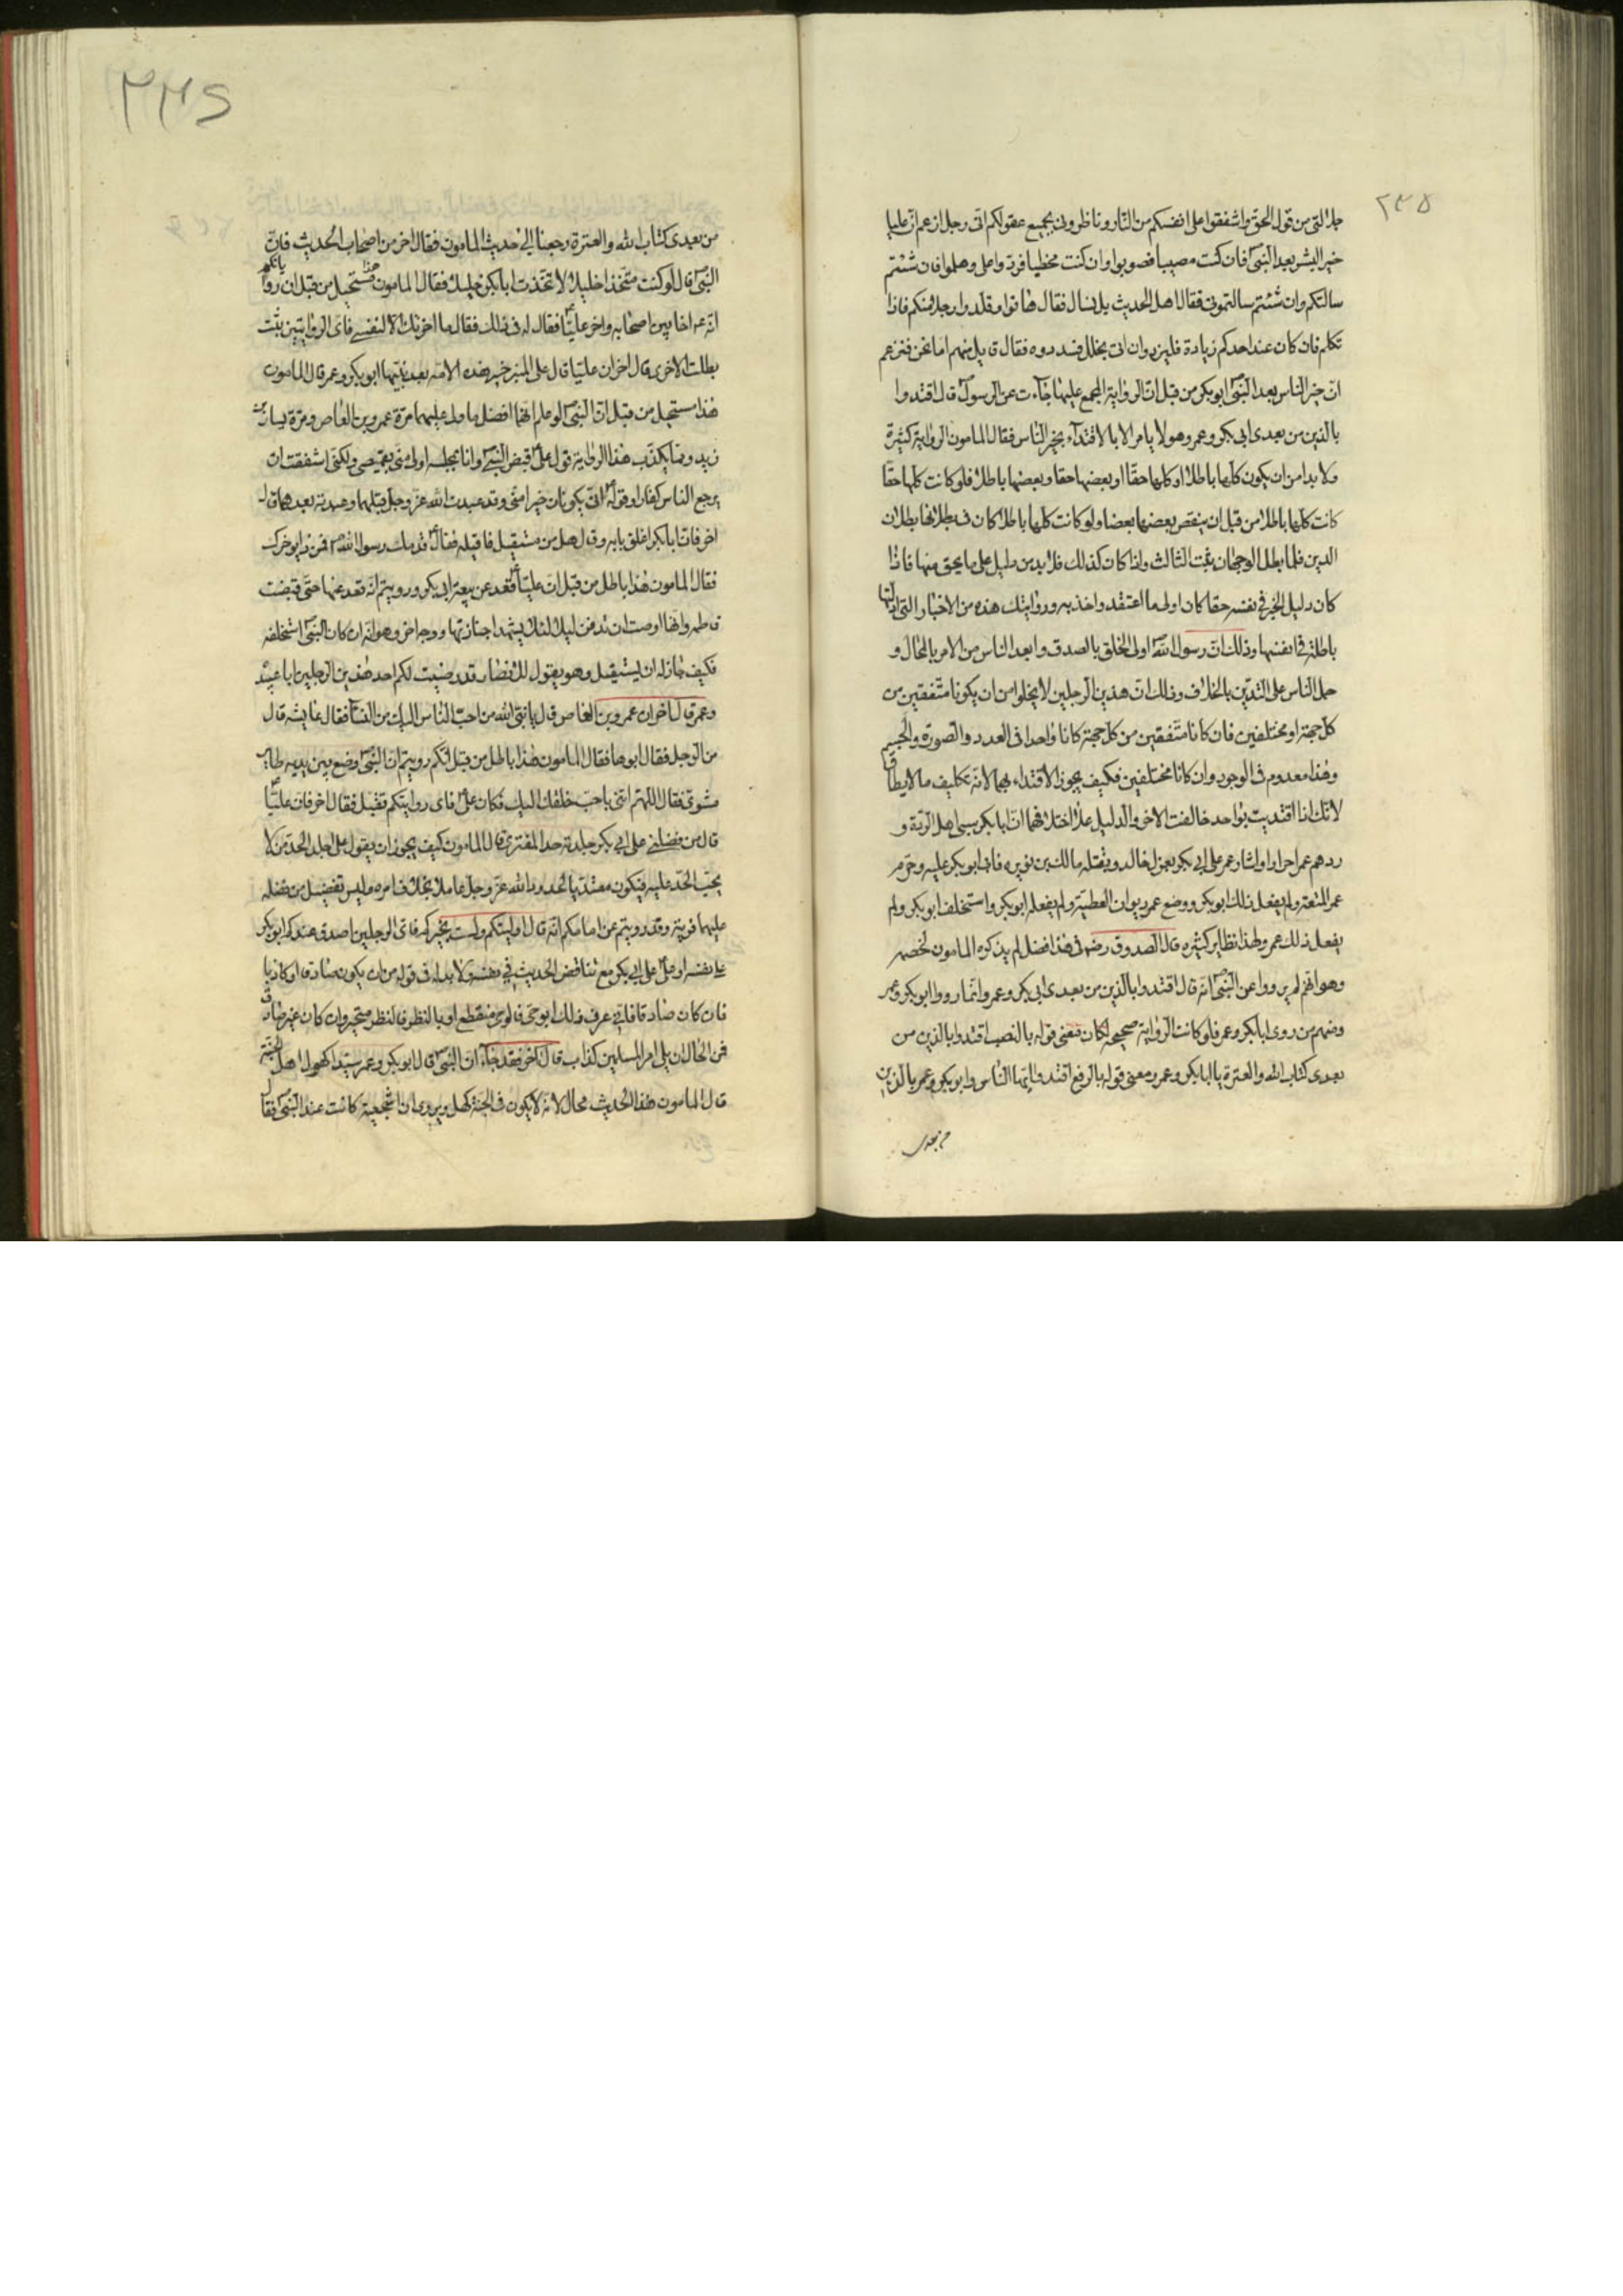 ٢٣٥
جلالتى من قول الحق واشفقوا على انفسكم من النار وناظرونى بجميع عقولكم انى رجل ازعم ان عليا
خير البشر بعد النبى ص فان كنت مصيبا فصوبوا وان كنت مخطيا فردوا على وهلموا فان شئتم
سالتكم وان شئتم سالتمونى فقال اهل الحديث بل نسال فقال هاتوا وقلدوا رجلا منكم فاذا
تكلم فان كان عند احدكم زيادة فليزد وان اتى بخلل فسددوه فقال قايل منهم اما نحن فنزعم
ان خير الناس بعد النبى ص ابوبكر من قبل ان الرواية المجمع عليها جاءت عن الرسول ص قال اقتدوا
بالذين من بعدى ابى بكر وعمر وهو لا يامر الا بالاقتداء بخير الناس فقال المامون الرواية كثيرة
ولا بد من ان يكون كلها باطلا او كلها حقا او بعضها حقا وبعضها باطلا فلو كانت كلها حقا
كانت كلها باطلا من قبل ان ينقض بعضها بعضا ولو كانت كلها باطلا كان فى بطلانها بطلان
الدين فلما بطل الوجهان ثبت الثالث واذا كان كذلك فلا بد من دليل على ما يحق منها فاذا
كان دليل الخبر فى نفسه حقا كان اولى ما اعتقد واخذ به وروايتك هذه من الاخبار التى ادلتها
باطلة فى انفسها وذلك ان رسول الله ص اولى الخلق بالصدق وابعد الناس من الامر بالمحال و
حمل الناس على التدين بالخلاف وذلك ان هذين الرجلين لا يخلوا من ان يكونا متفقين من
كل جهة او مختلفين فان كانا متفقين من كل جهة كانا واحدا فى العدد والصورة والجسم
وهذا معدوم فى الوجود وان كانا مختلفين فكيف يجوز الاقتداء بهما لانه تكليف ما لا يطاق
لانك اذا اقتديت بواحد خالفت الاخر والدليل على اختلافهما ان ابا بكر سبى اهل الردة و
ردهم عمر احرارا واشار عمر على ابى بكر بعزل خالد وبقتله مالك بن نويره فابى ابو بكر عليه وحرم
عمر المتعة ولم يفعل ذلك ابو بكر ووضع عمر ديوان العطية ولم يفعله ابو بكر واستخلف ابو بكر ولم
يفعل ذلك عمر ولهذا نظاير كثيره قال الصدوق رض فى هذا فضل لم يذكره المامون لخصمه
وهو انهم لم يرووا عن النبى ص انه قال اقتدوا بالذين من بعدى ابى بكر وعمر وانما رووا ابو بكر وعمر
ومنهم من روى ابا بكر وعمر فلو كانت الرواية صحيحه لكان معنى قوله بالنصب اقتدوا بالذين من
بعدى كتاب الله والعترة يا ابا بكر وعمر ومعنى قوله بالرفع اقتدوا ايها الناس وابو بكر وعمر بالذين
من بعدى
من بعدى كتاب الله والعترة رجعنا الى حديث المامون فقال اخر من اصحاب الحديث فان
النبى ص قال لو كنت متخذا خليلا لاتخذت ابا بكر خليلا فقال المامون هذا مستحيل من قبل ان رواياتكم
انه ص اخا بين اصحابه واخر عليا ع فقال له فى ذلك فقال ما اخرتك الا لنفسى فاى الروايتين ثبتت
بطلت الاخرى قال اخر ان عليا قال على المنبر خير هذه الامه بعد نبيها ابو بكر وعمر قال المامون
هذا مستحيل من قبل ان النبى ص لو علم انهما افضل ما ولى عليهما مرة عمرو بن العاص ومرة اسامة بن
زيد ومما يكذب هذا الرواية قول على ع قبض النبى ص وانا بمجلسه اولى منى بقميصى ولكنى اشفقت ان
يرجع الناس كفارا وقوله ع انى يكونان خيرا منى وقد عبدت الله عز وجل قبلهما وعبدته بعدهما قال
اخر فان ابا بكر اغلق بابه وقال هل من مستقيل فاقيله فقال ع قدمك رسول الله ص فمن ذا يوخرك
فقال المامون هذا باطل من قبل ان عليا ع قعد عن بيعة ابى بكر ورويتم انه قعد عنها حتى قبضت
فاطمه وانها اوصت ان تدفن ليلا لئلا يشهدا جنازتها ووجه اخر وهو انه ان كان النبى ص استخلفه
فكيف جاز له ان يستقيل وهو يقول للانصار قد رضيت لكم احد هذين الرجلين ابا عبيده
وعمر قال اخر ان عمرو بن العاص قال يا نبى الله من احب الناس اليك من النسآ فقال عايشه قال
من الرجل فقال ابوها فقال المامون هذا باطل من قبل انكم رويتم ان النبى ص وضع بين يديه طاير
مشوى فقال اللهم ائتنى باحب خلقك اليك فكان على ع فاى روايتكم تقبل فقال اخر فان عليا ع
قال من فضلنى على ابى بكر جلدته حد المفترى قال المامون كيف يجوز ان يقول على اجلد الحد من لا
يجب الحد عليه فيكون متعديا لحدود الله عز وجل عاملا بخلاف امره وليس تفضيل من فضله
عليهما فرية وقد رويتم عن امامكم انه قال وليتكم ولست بخيركم فاى الرجلين اصدق عندكم ابو بكر
على نفسه او على ع على ابى بكر مع تناقض الحديث فى نفسه ولا بد له فى قوله من ان يكون صادقا او كاذبا
فان كان صادقا فانى عرف ذلك ابوحى فالوحى منقطع او بالنظر فالنظر متحير وان كان غير صادق
فمن المحال ان يلى امر المسلمين كذاب قال اخر فقد جاء ان النبى ص قال ابو بكر وعمر سيدا كهول اهل الجنة
قال المامون هذا الحديث محال لانه لا يكون فى الجنة كهل ويروى ان اشجعية كانت عند النبى ص فقال